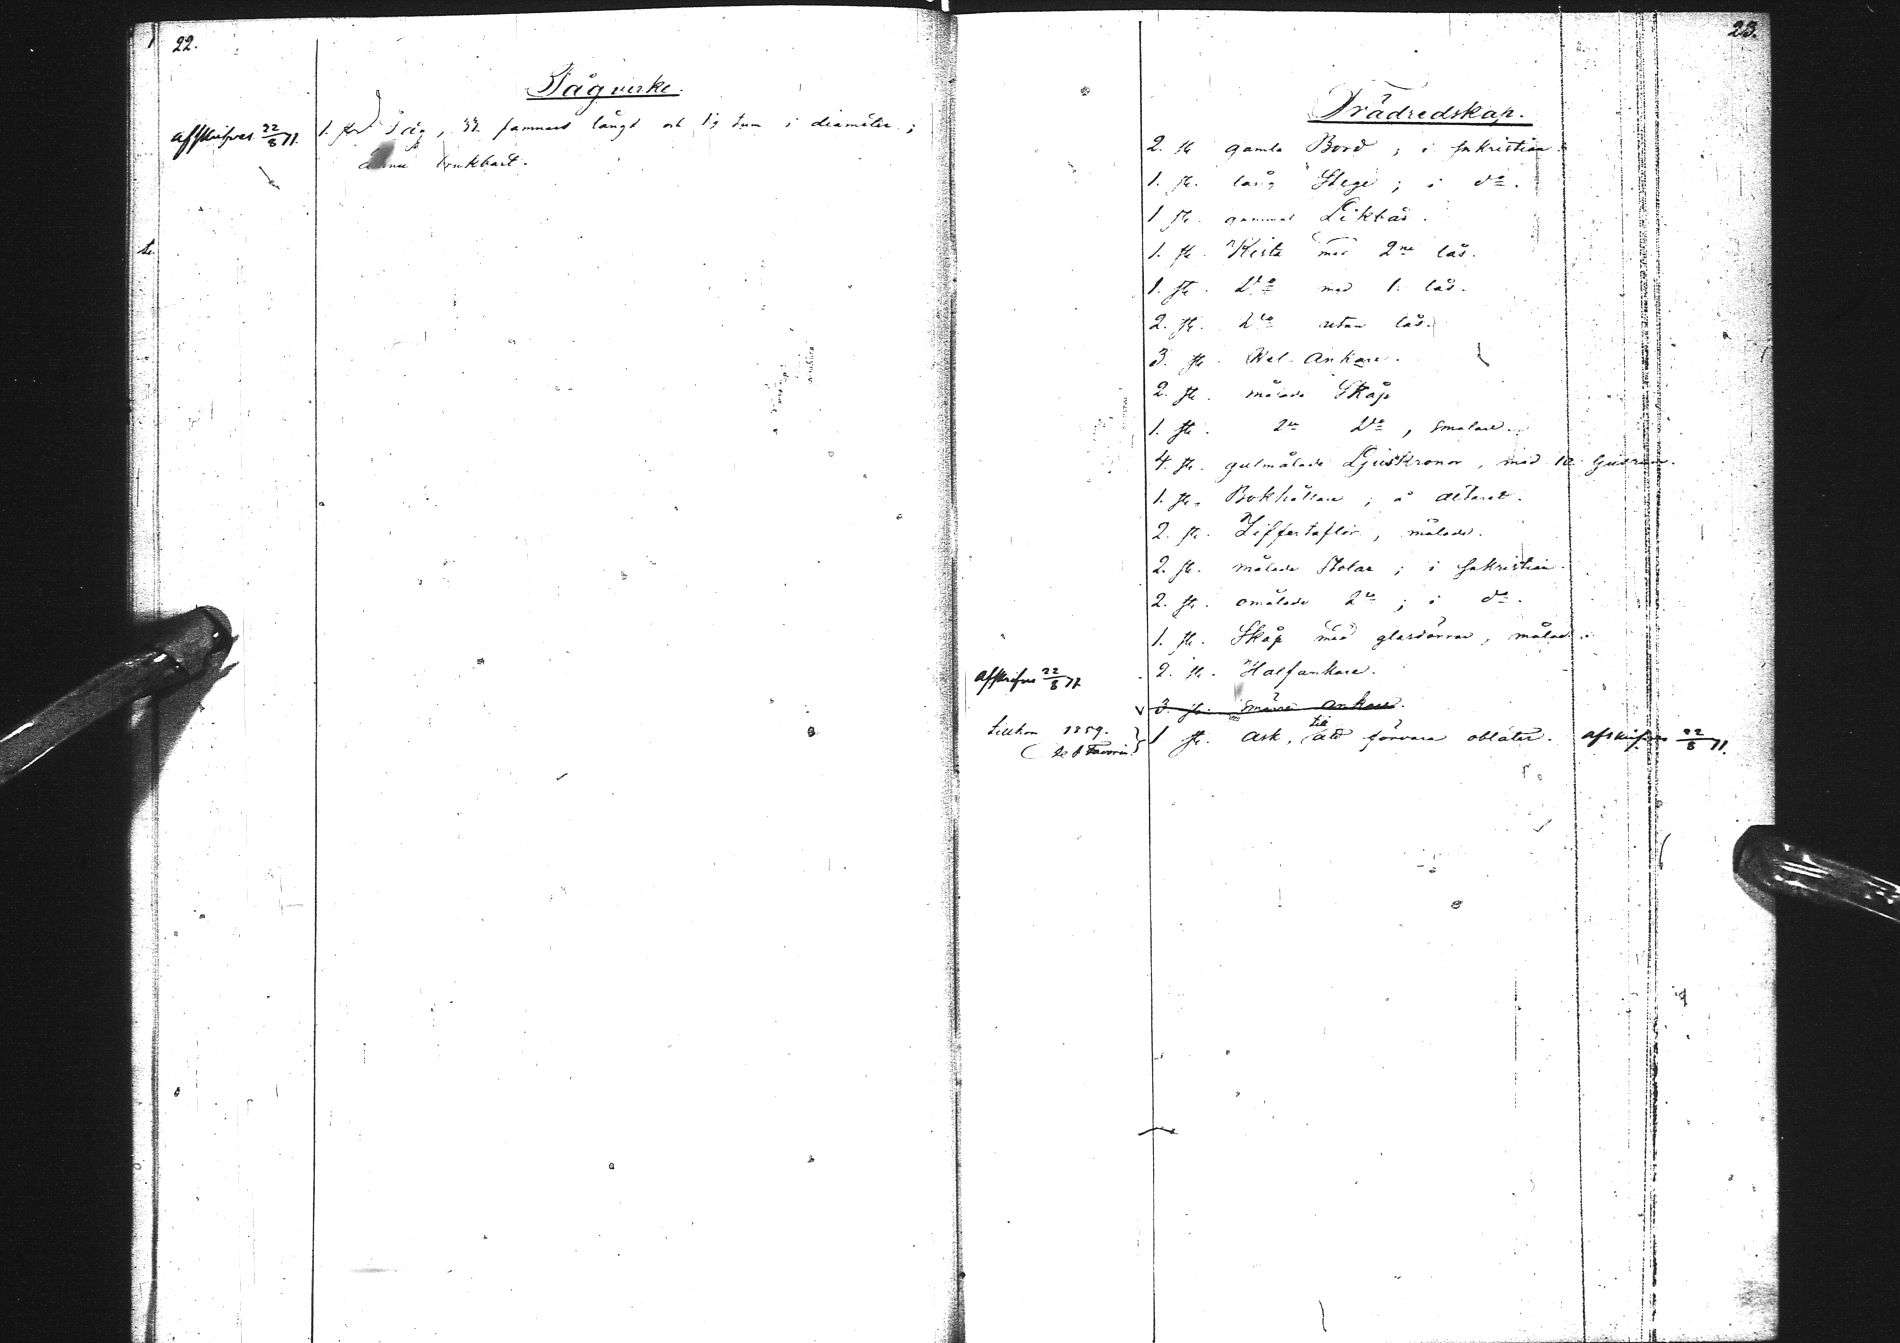 22.
Tågverke.
afskrifves 22/8 71.
1. st Tåg, 32 famnar långt och 1½ tum i diameter;
ännu brukbart.
23.
Trädredskap.
2. st gamla Bord; i sakristian.
1. st. lång Stege; i do.
1 st. gammal Likbår.
1. st. Kista med 2ne lås.
1. st. Do med 1. lås.
2. st. Do utan lås.
3. st. Hel-Ankare.
2. st. målade Skåp
1. st. Do Do, smalare.
4. st. gulmålade Ljuskronor, med 12
1. st. Bokhållare; å altaret.
2. st. Ziffertaflor, målade.
2. st. målade Stolar; i sakristian.
2. st. omålade Do; i do.
1. st. Skåp med glasdörrar, målad.
afskrifves 22/8 71
2. st. Halfankare.
3. st. smärre ankare.
tillkom 1859.
1 st. ask, till att förvara oblater. afskrifves 22/8 71.